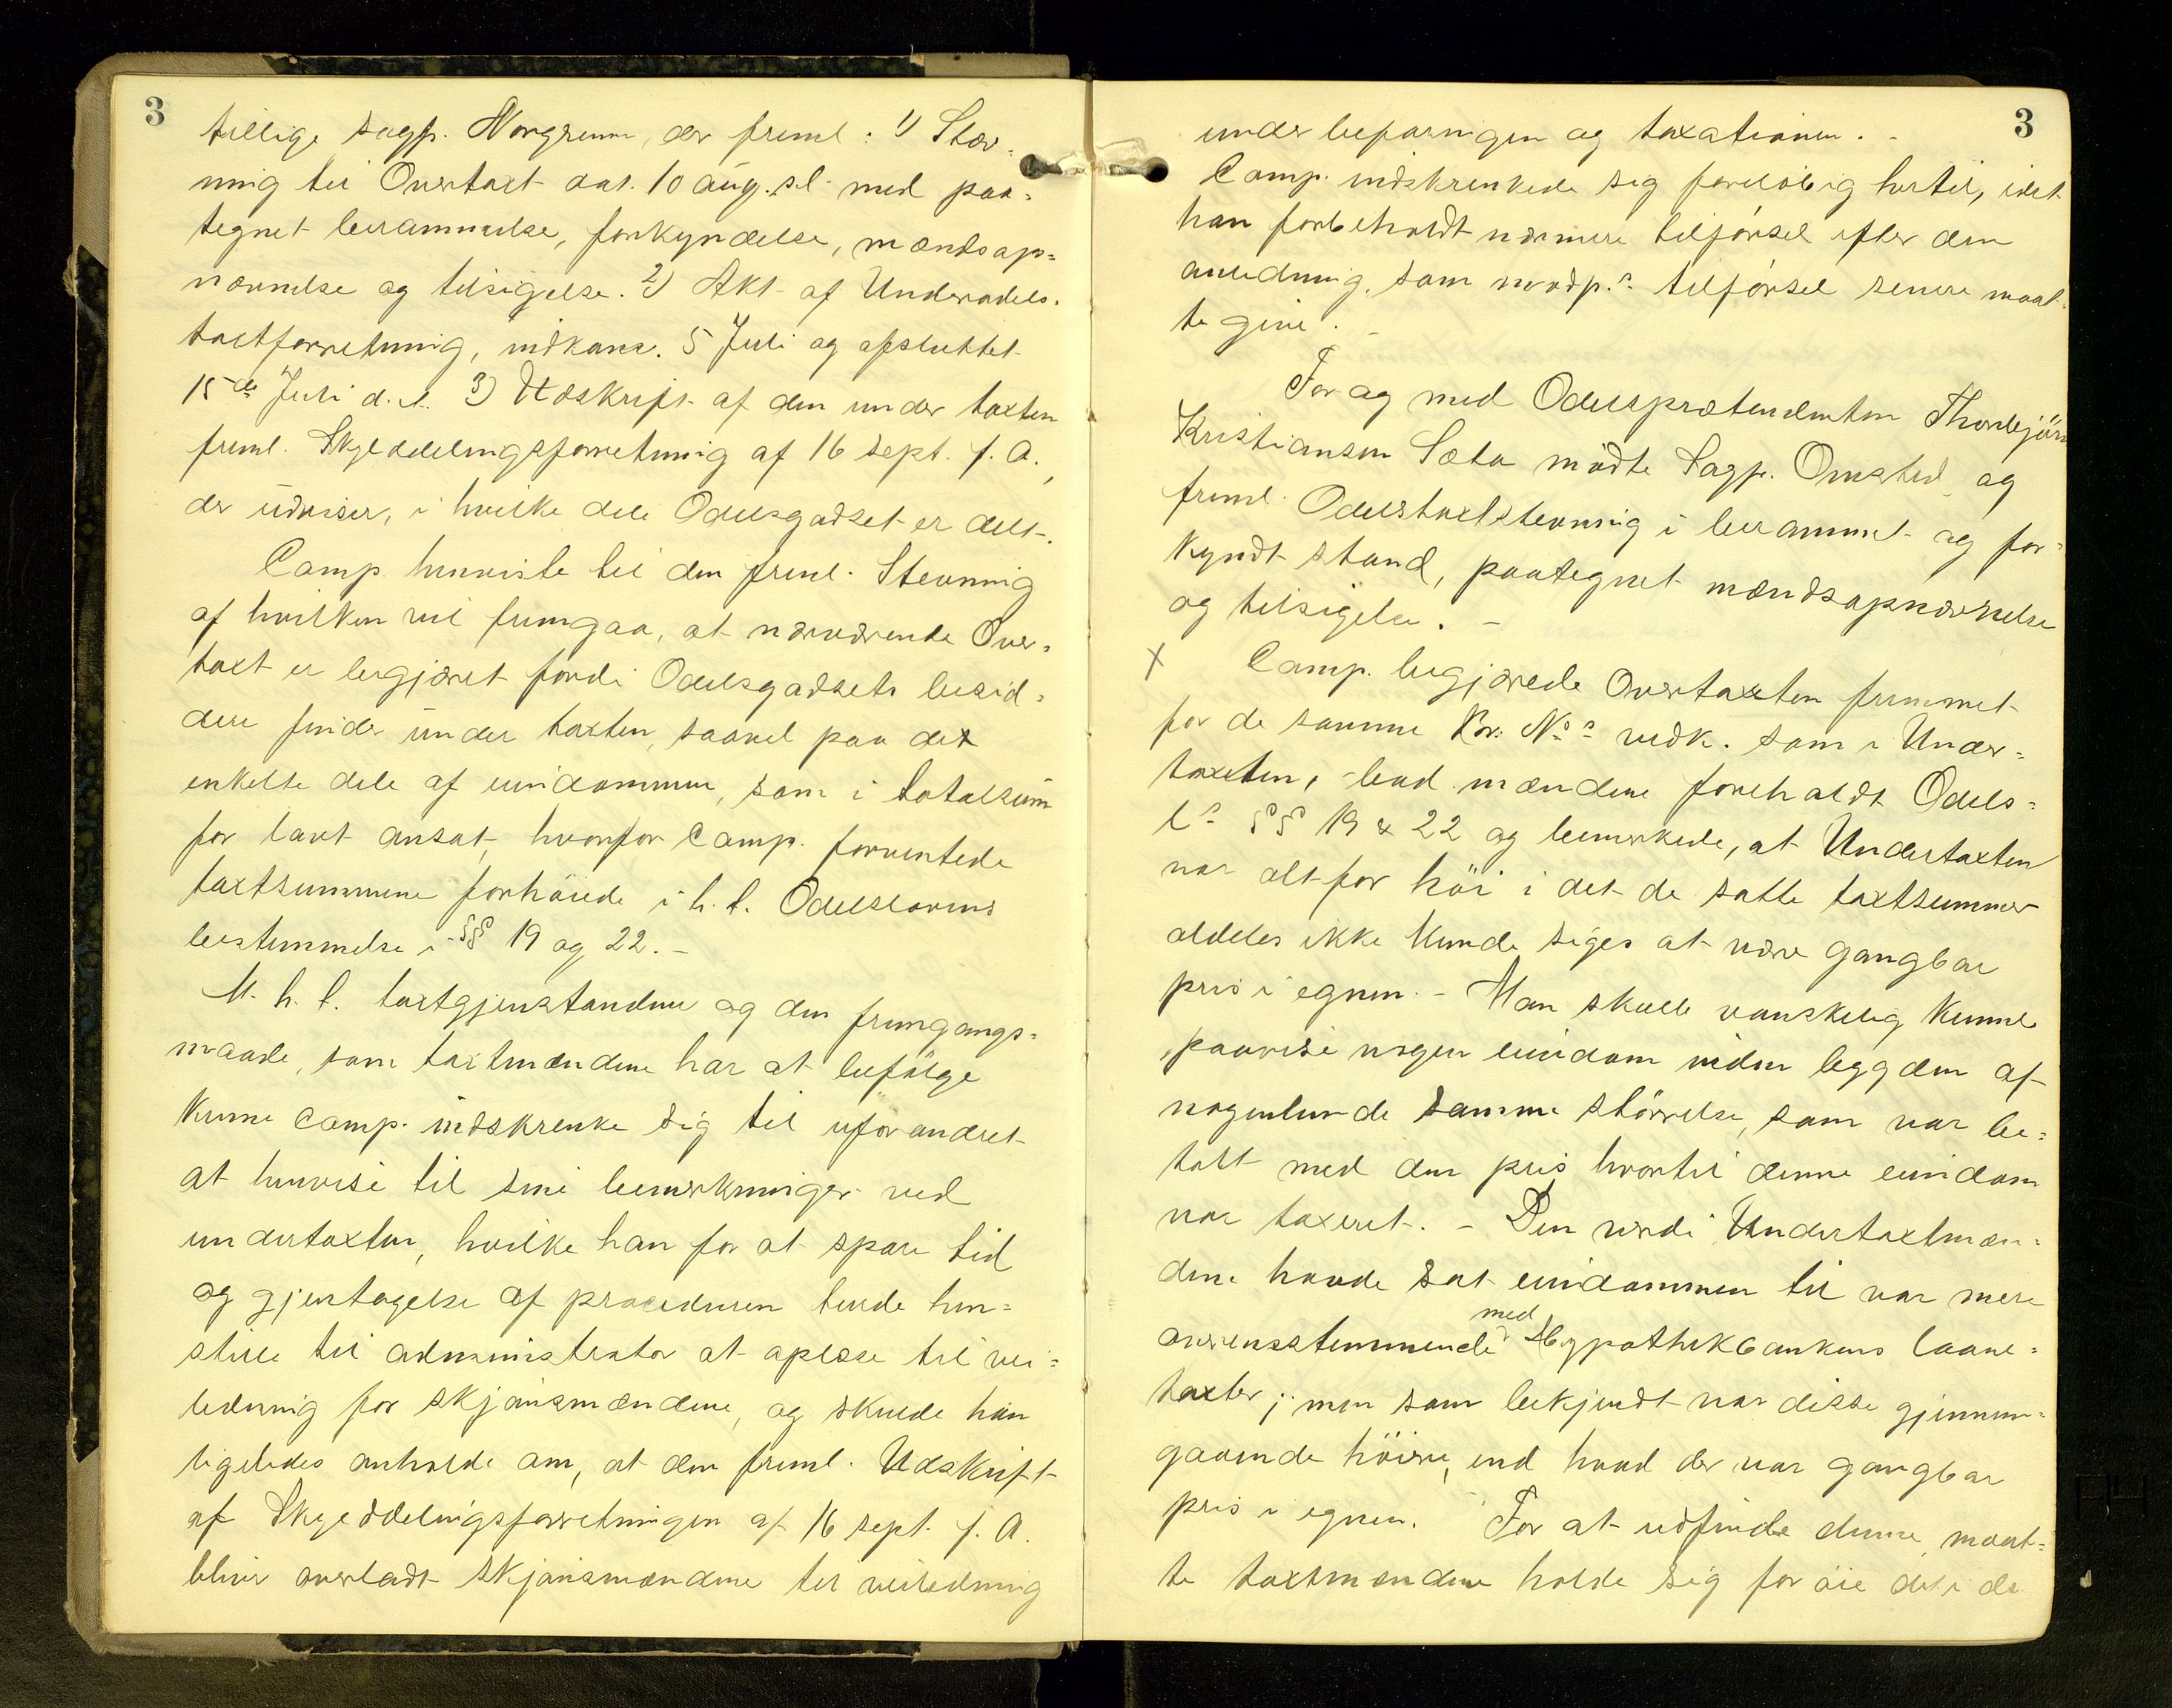 3
tillige sagf. Norgrenn, der freml: 1) Stæv=
ning til Overtaxt dat. 10 aug. sl. med paa=
tegnet berammelse, forkyndelse, mændsop=
nævnelse og tilsigelse. 2) Akt af Underodels=
taxtforretning, indkom. 5 Juli og afsluttet
15de Juli d. A. 3) Udskrift af den under taxten
freml. Skylddelingsforretning af 16 sept. f. A.,
der udviser, i hvilke dele Odelsgodset er delt.
Comp. henviste til den freml. Stevnning
af hvilken vil fremgaa, at nærværende Over=
taxt er begjæret fordi Odelsgodsets besid=
dere finder under taxten, saavel paa det
enkelte dele af eiendommen, som i totalsum
for lavt ansat, hvorfor Comp. forventede
taxtsummene forhöiede i h. t. Odelslovens
bestemmelse i §§ 19 og 22. –
M. h. t. taxtgjenstandene og den fremgangs=
maade, som taxtmændene har at befölge
kunne Comp. indskrenke sig til uforandret
at henvise til sine bemerkninger ved
undertaxten, hvilke han for at spare tid
og gjentagelse af proceduren turde hen=
stille til administrator at oplæse til vei=
ledning for skjönsmændene, og skulde han
ligeledes anholde om, at den freml. Udskrift
af Skylddelingsforretningen af 16 sept. f. A.
bliver overladt skjönsmændene til veiledning
3
under befaringen og taxationen. –
Comp. indskrenkede sig forelöbig hertil, idet
han forbeholdt nærmere tilförsel efter den
anledning, som modp.s tilförsel senere maat=
te give. –
For og med Odelsprætendenten Thorbjörn
Kristiansen Sæta mödte Sagf. Omsted og
freml. Odelstaxtstevning i berammet og for=
kyndt stand, paategnet mændsopnævnelse
og tilsigelse. –
x Comp. begjærede Overtaxten fremmet
for de samme Br. No.s vedk. som i Under=
taxten, – bad mændene foreholdt Odels=
l.s §§ 19 & 22 og bemerkede, at Undertaxten
var altfor höi i det de satte taxtsummer
aldeles ikke kunde siges at være gangbar
pris i egnen. – Man skulle vanskelig kunne
paavise nogen eiendom inden bygden af
nogenlunde samme störrelse, som var be=
talt med den pris, hvortil denne eiendom
var taxeret. – Den verdi Undertaxtmæn=
dene havde sat eiendommen til var mere
overensstemmende med Hypothekbankens laane=
taxter; men som bekjendt var disse gjennem=
gaaende höiere, end hvad der var gangbar
pris i egnen. For at udfinde denne, maat=
te taxtmændene holde sig for öie det i de